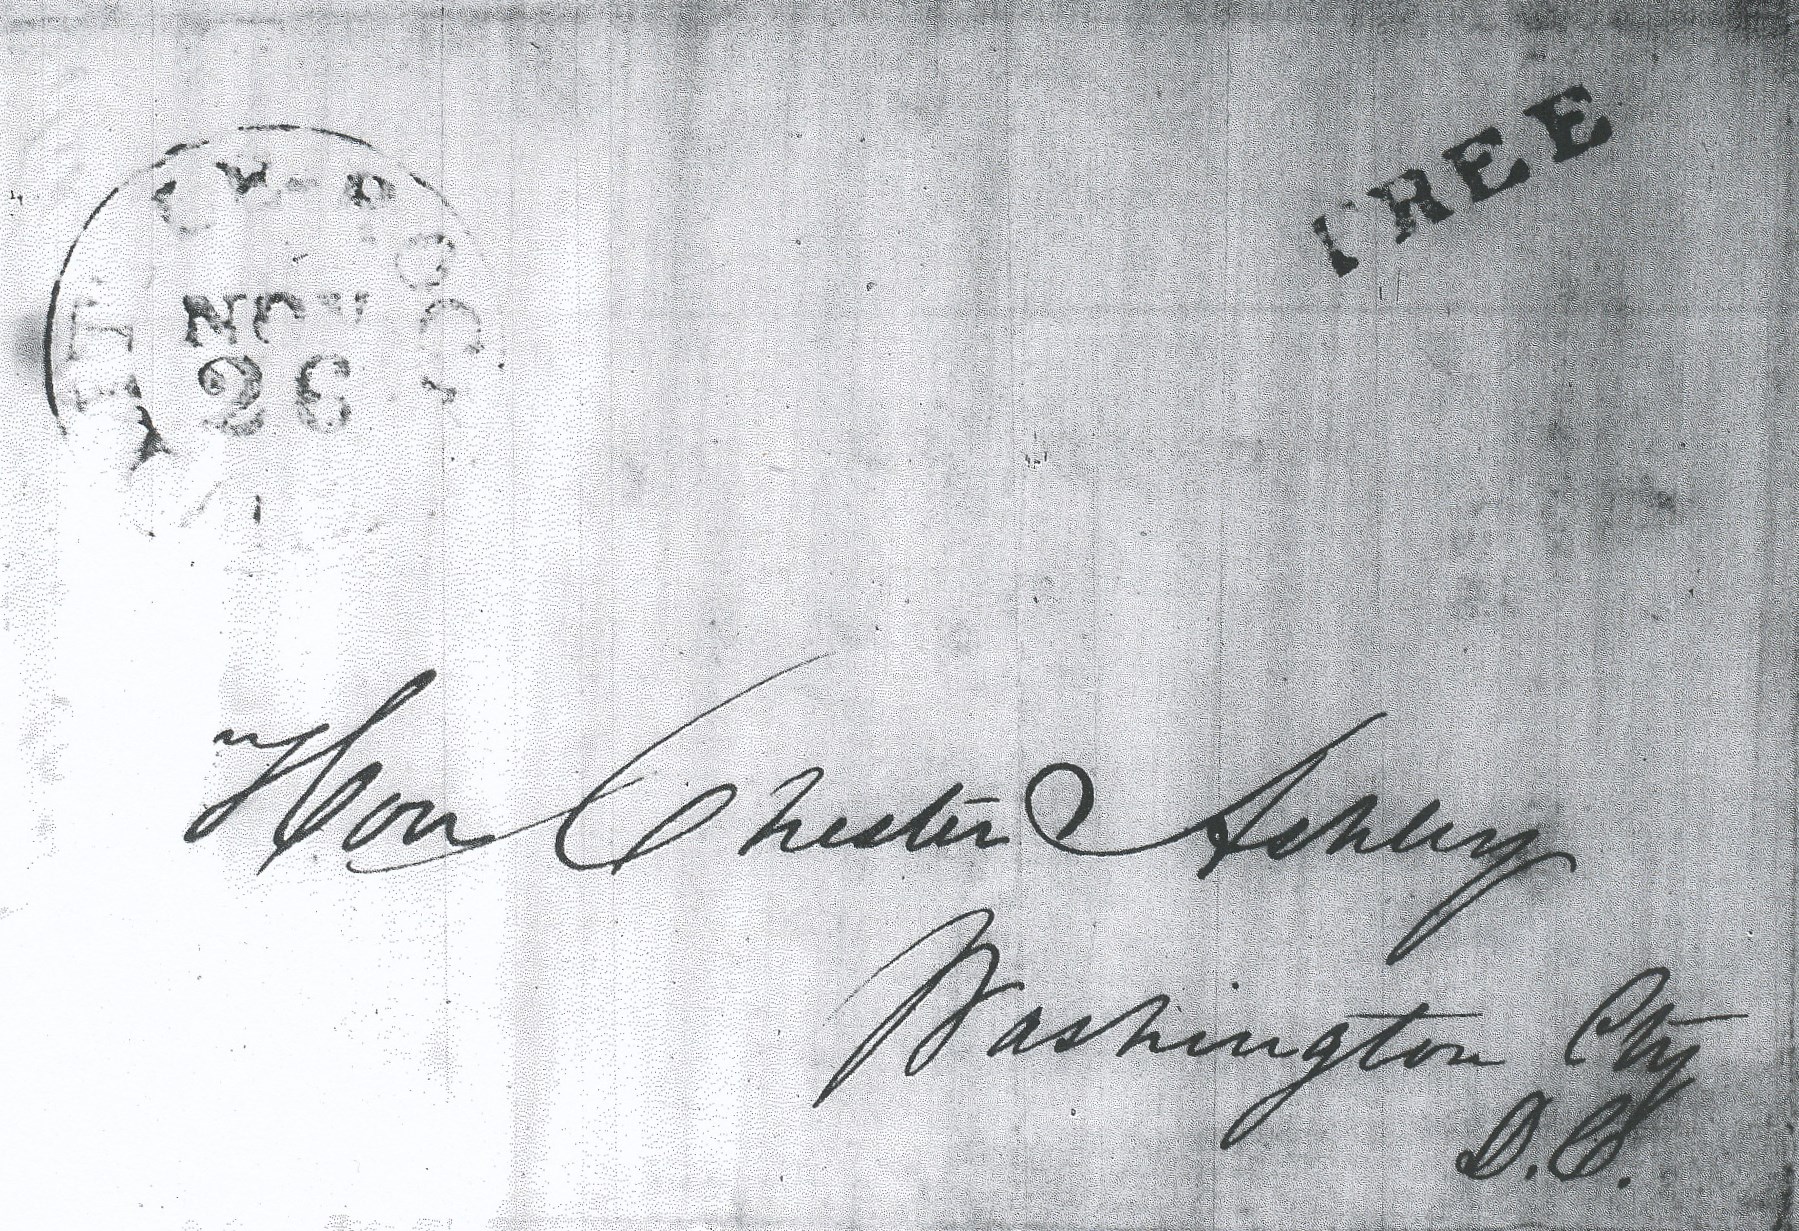 FREE
NOV
26
Hon Chester Ashley
Washington City
D.C.